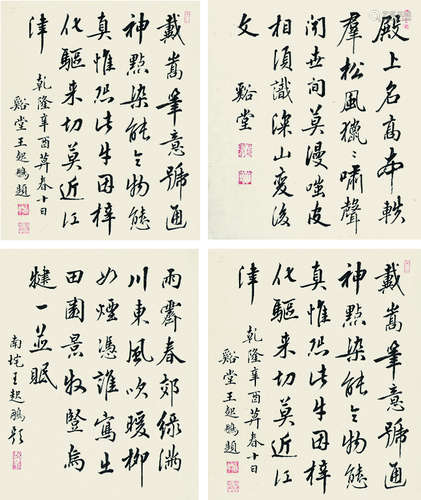 戴嵩筆意號通
神點染能令物態
真惟恐此牛因梓
化驅来切莫近江
津
乾隆辛酉暮春十日
谿堂王起鵬題
殿上名高本軼
羣松風獵〻嘯聲
聞世間莫漫嗤皮
相須識深山變後
文
谿堂
雨霽春郊綠滿
川東風吹暖柳
如煙憑誰寫出
田園景牧豎烏
犍一並眠
南垞王起鵬題
戴嵩筆意號通
神點染能令物態
真惟恐此牛因梓
化驅来切莫近江
津
乾隆辛酉暮春十日
谿堂王起鵬題